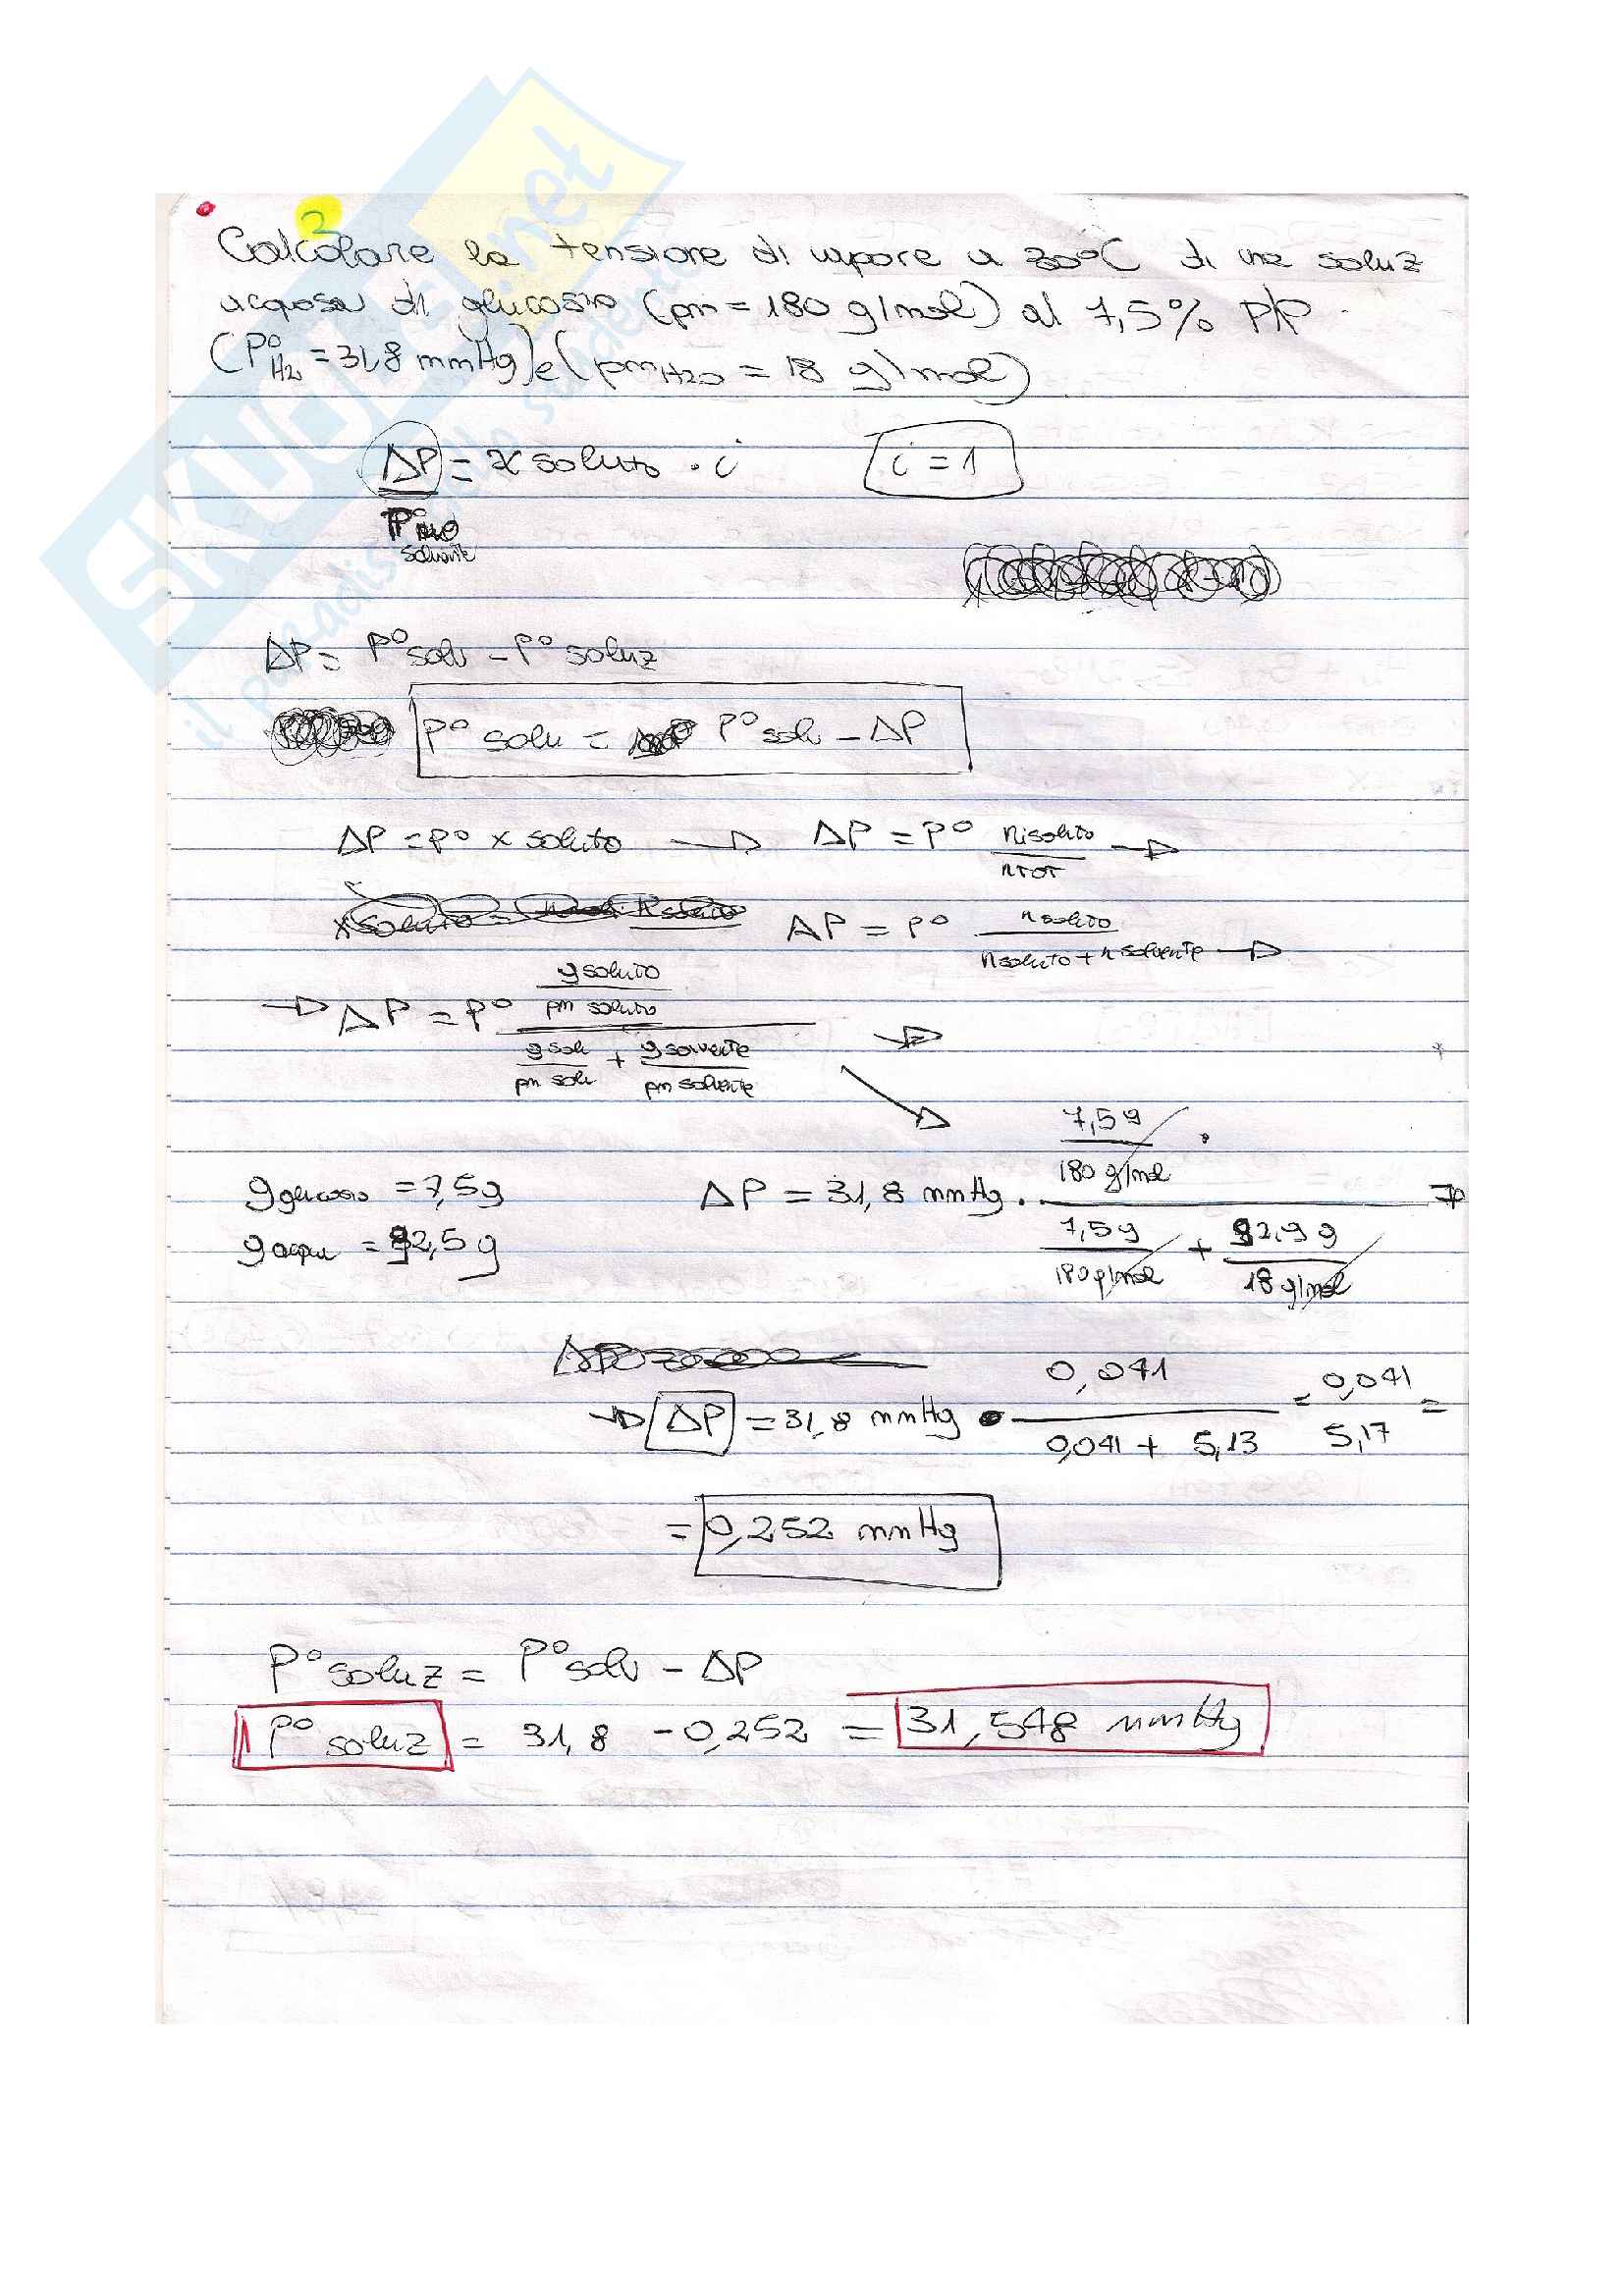 3
Calcolare la tensione di vapore a 30°C di una soluz
acquosa di glucosio (pm = 180 g/mol) al 7,5% P/P
(P°H2O = 31,8 mmHg) e (pmH2O = 18 g/mol)
ΔP = x soluto · i
i = 1
P°
solvente
ΔP = P° solv - P° soluz
P° solu = P° solv - ΔP
ΔP = P° x soluto → ΔP = P° n soluto / nTOT →
ΔP = P° n soluto / n soluto + n solvente →
→ ΔP = P° g soluto / pm soluto / g solu / pm solu + g solvente / pm solvente →
g glucosio = 7,5 g
g acqua = 92,5 g
ΔP = 31,8 mmHg · 7,5 g / 180 g/mol / 7,5 g / 180 g/mol + 92,5 g / 18 g/mol →
→ ΔP = 31,8 mmHg · 0,041 / 0,041 + 5,13 = 0,041 / 5,17 =
= 0,252 mmHg
P° soluz = P° solv - ΔP
P° soluz = 31,8 - 0,252 = 31,548 mmHg
SKUOLA.net
il paradiso dello studente